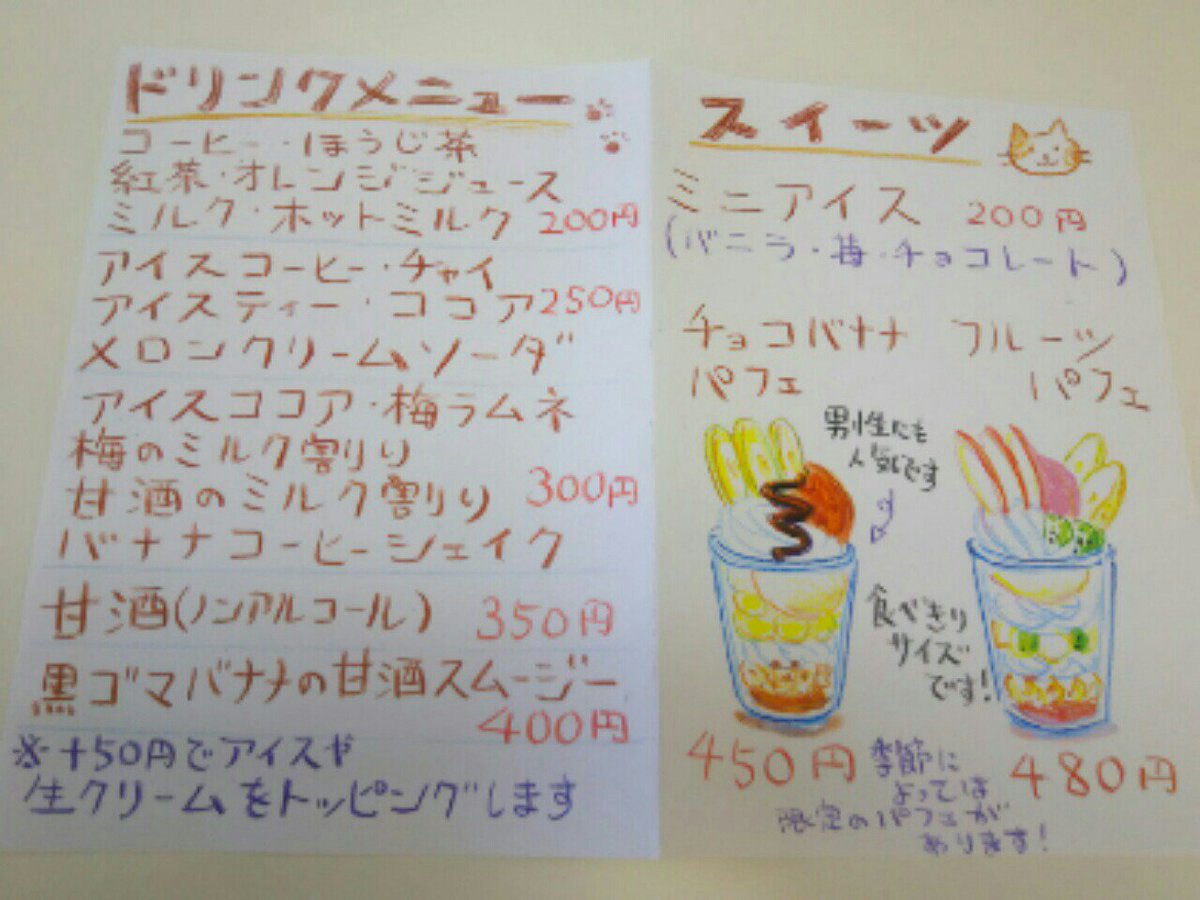 ドリンクメニュー
コーヒー・ほうじ茶
紅茶・オレンジジュース
ミルク・ホットミルク 200円
アイスコーヒー・チャイ
アイスティー・ココア 250円
メロンクリームソーダ
アイスココア・梅ラムネ
梅のミルク割り
甘酒のミルク割り 300円
バナナコーヒーシェイク
甘酒(ノンアルコール) 350円
黒ゴマバナナの甘酒スムージー
400円
※+50円でアイスや
生クリームをトッピングします
スイーツ
ミニアイス 200円
(バニラ・梅・チョコレート)
チョコバナナ
パフェ
フルーツ
パフェ
男性にも
人気です
食べきり
サイズ
です!
450円
480円
季節に
よっては
限定のパフェが
あります!